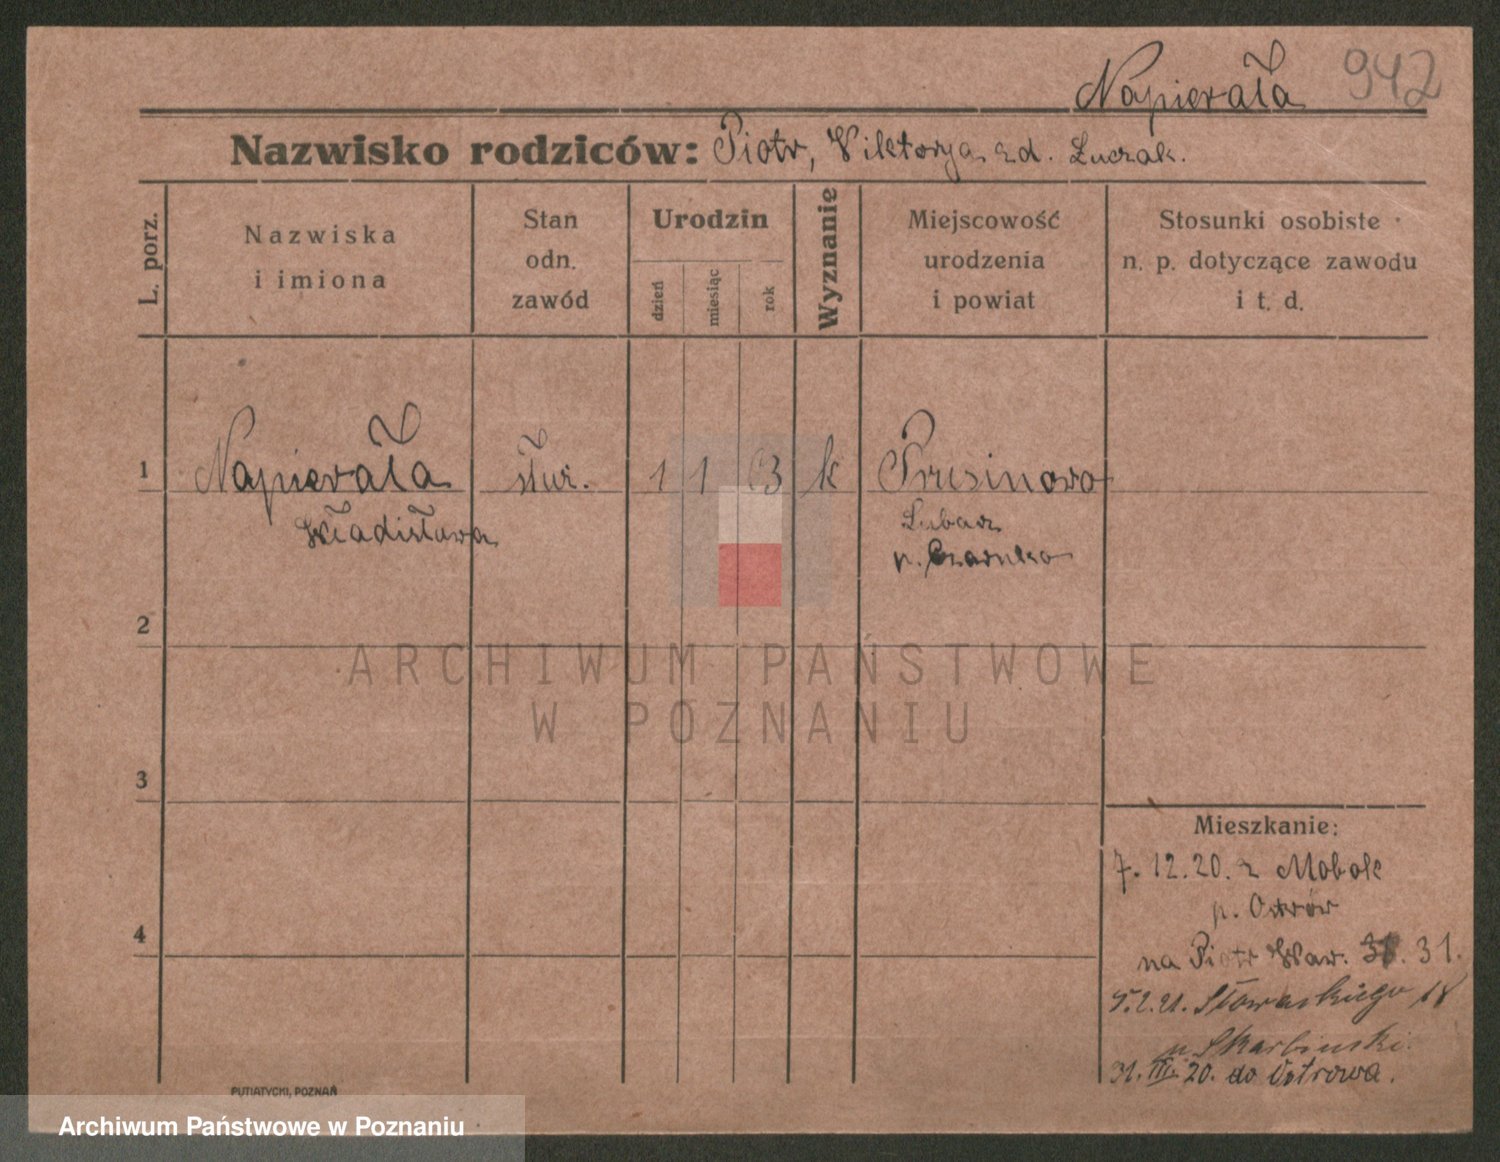 Napierała 942
Nazwisko rodziców: Piotr, Viktorya zd. Łuczak.
L. porz.
Nazwiska
i imiona
Stan
odn.
zawód
Urodzin
dzień
miesiąc
rok
Wyznanie
Miejscowość
urodzenia
i powiat
Stosunki osobiste
n. p. dotyczące zawodu
i t. d.
1 Napierała służ. 1 1 03 k Prusinowo
Władisława Lubasz
p. Czarnko
2
3
4
ARCHIWUM PAŃSTWOWE
W POZNANIU
Mieszkanie:
7. 12. 20. z
p. Ostrów
na Piotr Waw. 31.
5.2.21. Słowackiego 18
u Skarbinski.
31. III. 20. do Ostrowa.
PUTIATYCKI, POZNAŃ
Archiwum Państwowe w Poznaniu